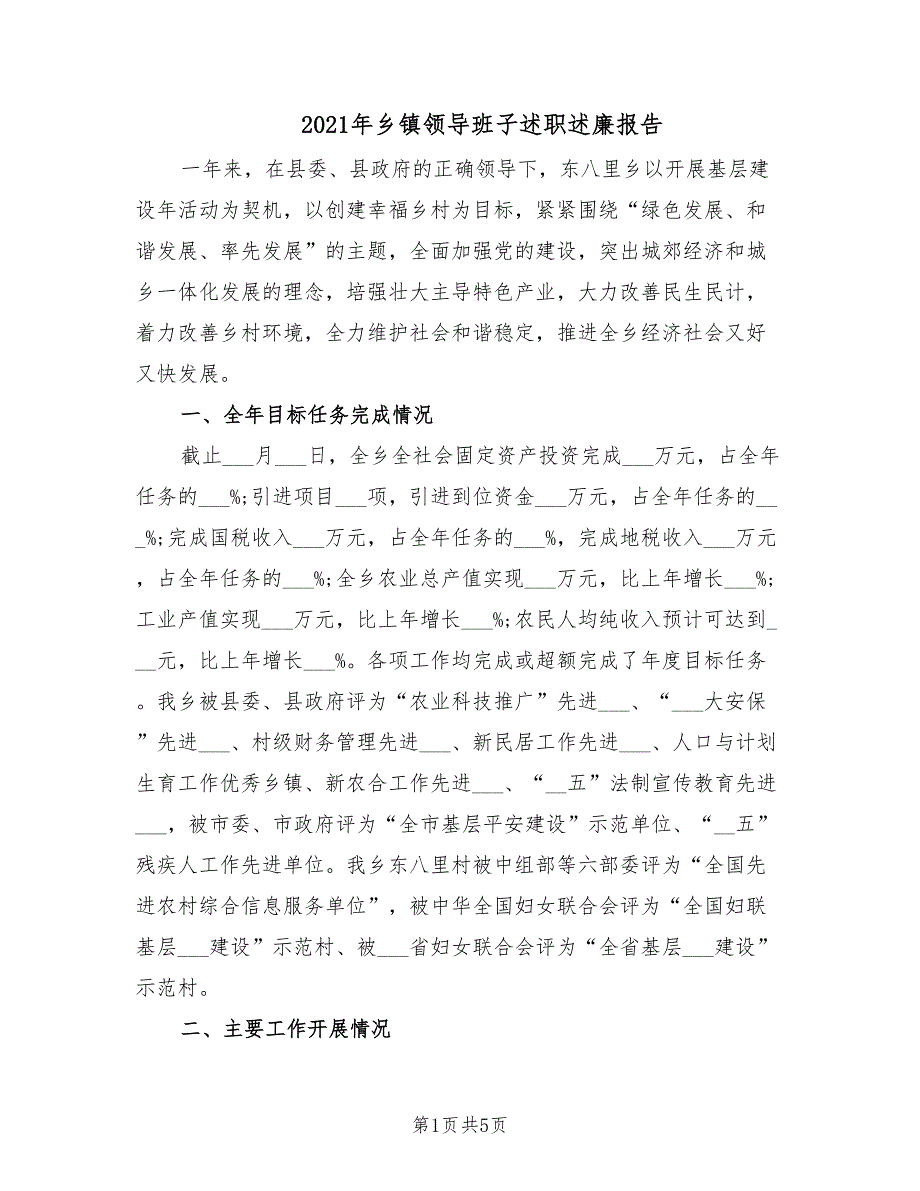 2021年乡镇领导班子述职述廉报告
一年来，在县委、县政府的正确领导下，东八里乡以开展基层建
设年活动为契机，以创建幸福乡村为目标，紧紧围绕“绿色发展、和
谐发展、率先发展”的主题，全面加强党的建设，突出城郊经济和城
乡一体化发展的理念，培强壮大主导特色产业，大力改善民生民计，
着力改善乡村环境，全力维护社会和谐稳定，推进全乡经济社会又好
又快发展。
一、全年目标任务完成情况
截止___月___日，全乡全社会固定资产投资完成___万元，占全年
任务的___%;引进项目___项，引进到位资金___万元，占全年任务的__
_%;完成国税收入___万元，占全年任务的___%，完成地税收入___万元
，占全年任务的___%;全乡农业总产值实现___万元，比上年增长___%;
工业产值实现___万元，比上年增长___%;农民人均纯收入预计可达到_
__元，比上年增长___%。各项工作均完成或超额完成了年度目标任务
。我乡被县委、县政府评为“农业科技推广”先进___、“___大安保
”先进___、村级财务管理先进___、新民居工作先进___、人口与计划
生育工作优秀乡镇、新农合工作先进___、“__五”法制宣传教育先进
___，被市委、市政府评为“全市基层平安建设”示范单位、“__五”
残疾人工作先进单位。我乡东八里村被中组部等六部委评为“全国先
进农村综合信息服务单位”，被中华全国妇女联合会评为“全国妇联
基层___建设”示范村、被___省妇女联合会评为“全省基层___建设”
示范村。
二、主要工作开展情况
第1页共5页